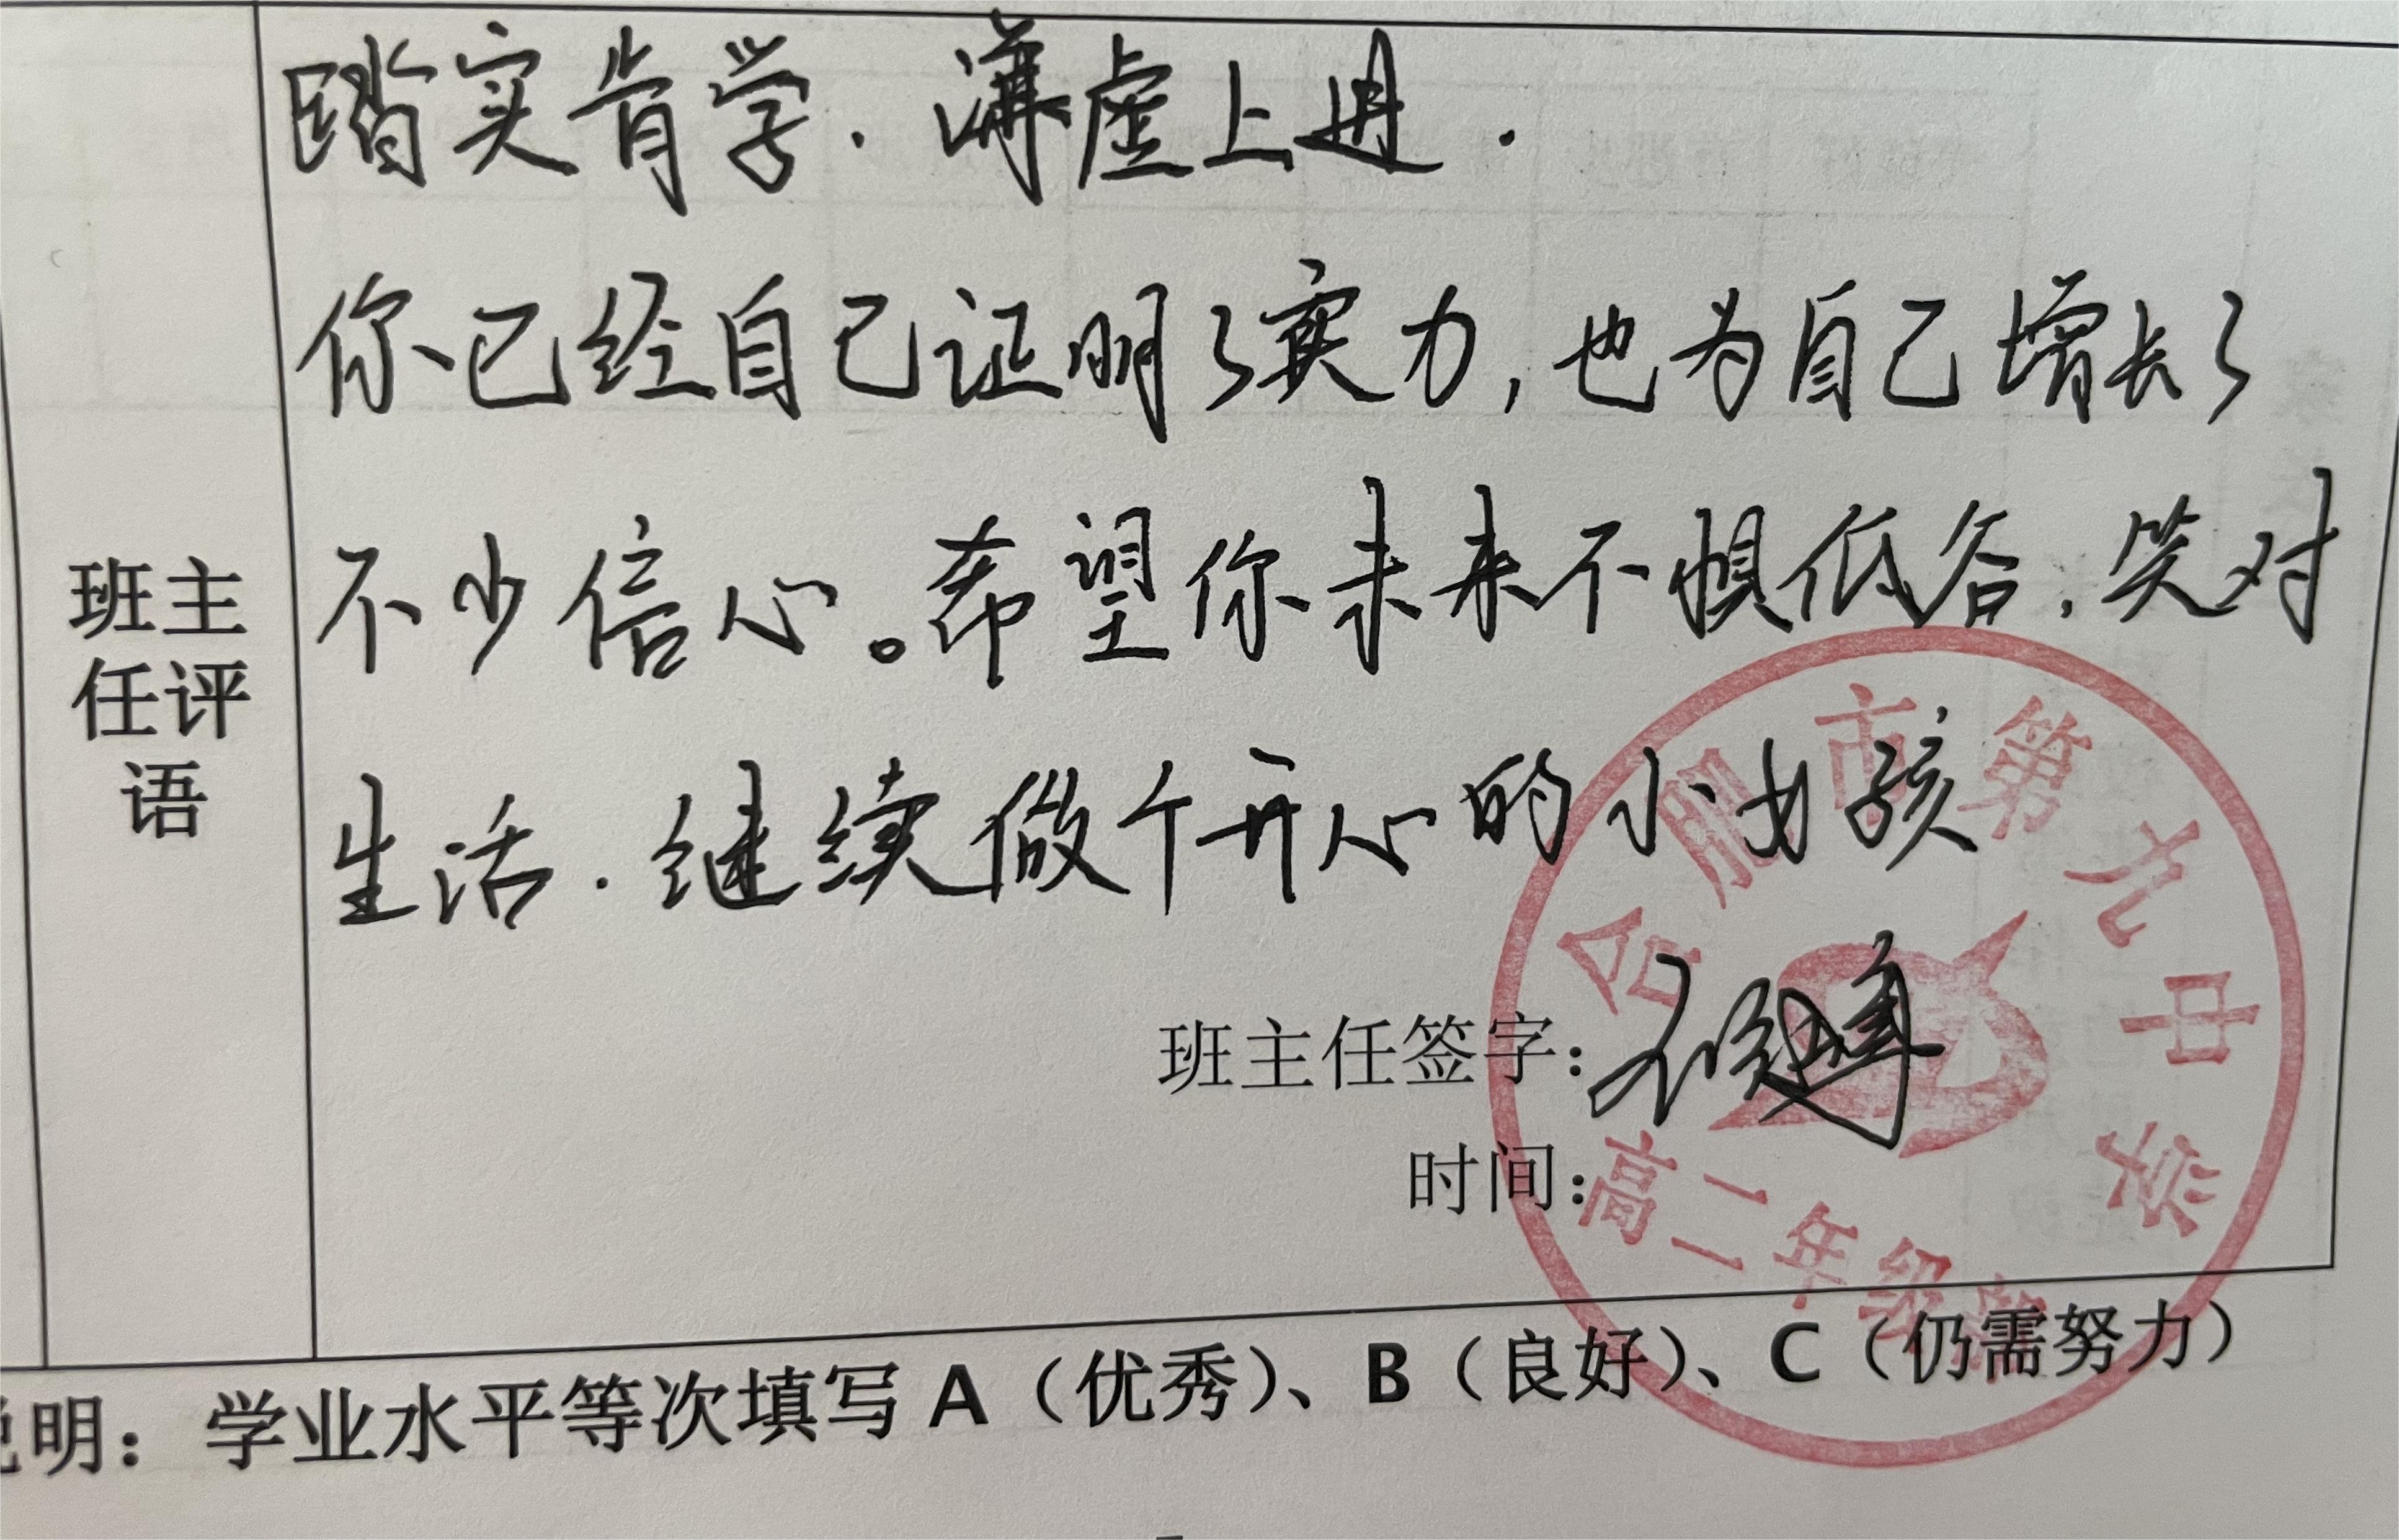 踏实肯学.谦虚上进.
你已经自己证明了实力,也为自己增长了
不少信心。希望你未来不惧低谷.笑对
生活.继续做个开心的小女孩
班主
任评
语
班主任签字:
时间:
合肥市第九中学
高二年级
说明:学业水平等次填写A(优秀)、B(良好)、C(仍需努力)